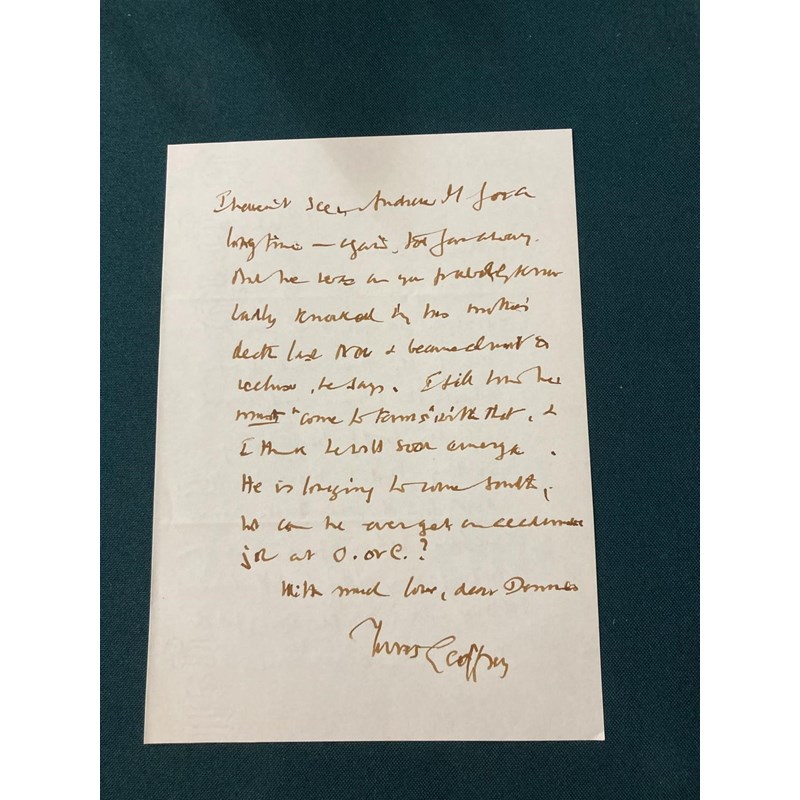 I haven't seen Andrew M for a
long time — again, too far away.
And he was as you probably know
badly knocked by his mother's
death last Nov & became almost a
recluse, he says. I still he
must "come to terms" with that, &
I think he will soon emerge.
He is longing to come South,
but can he ever get an academic
job at O. or C.?
With much love, dear Dennis
Yours Geoffrey